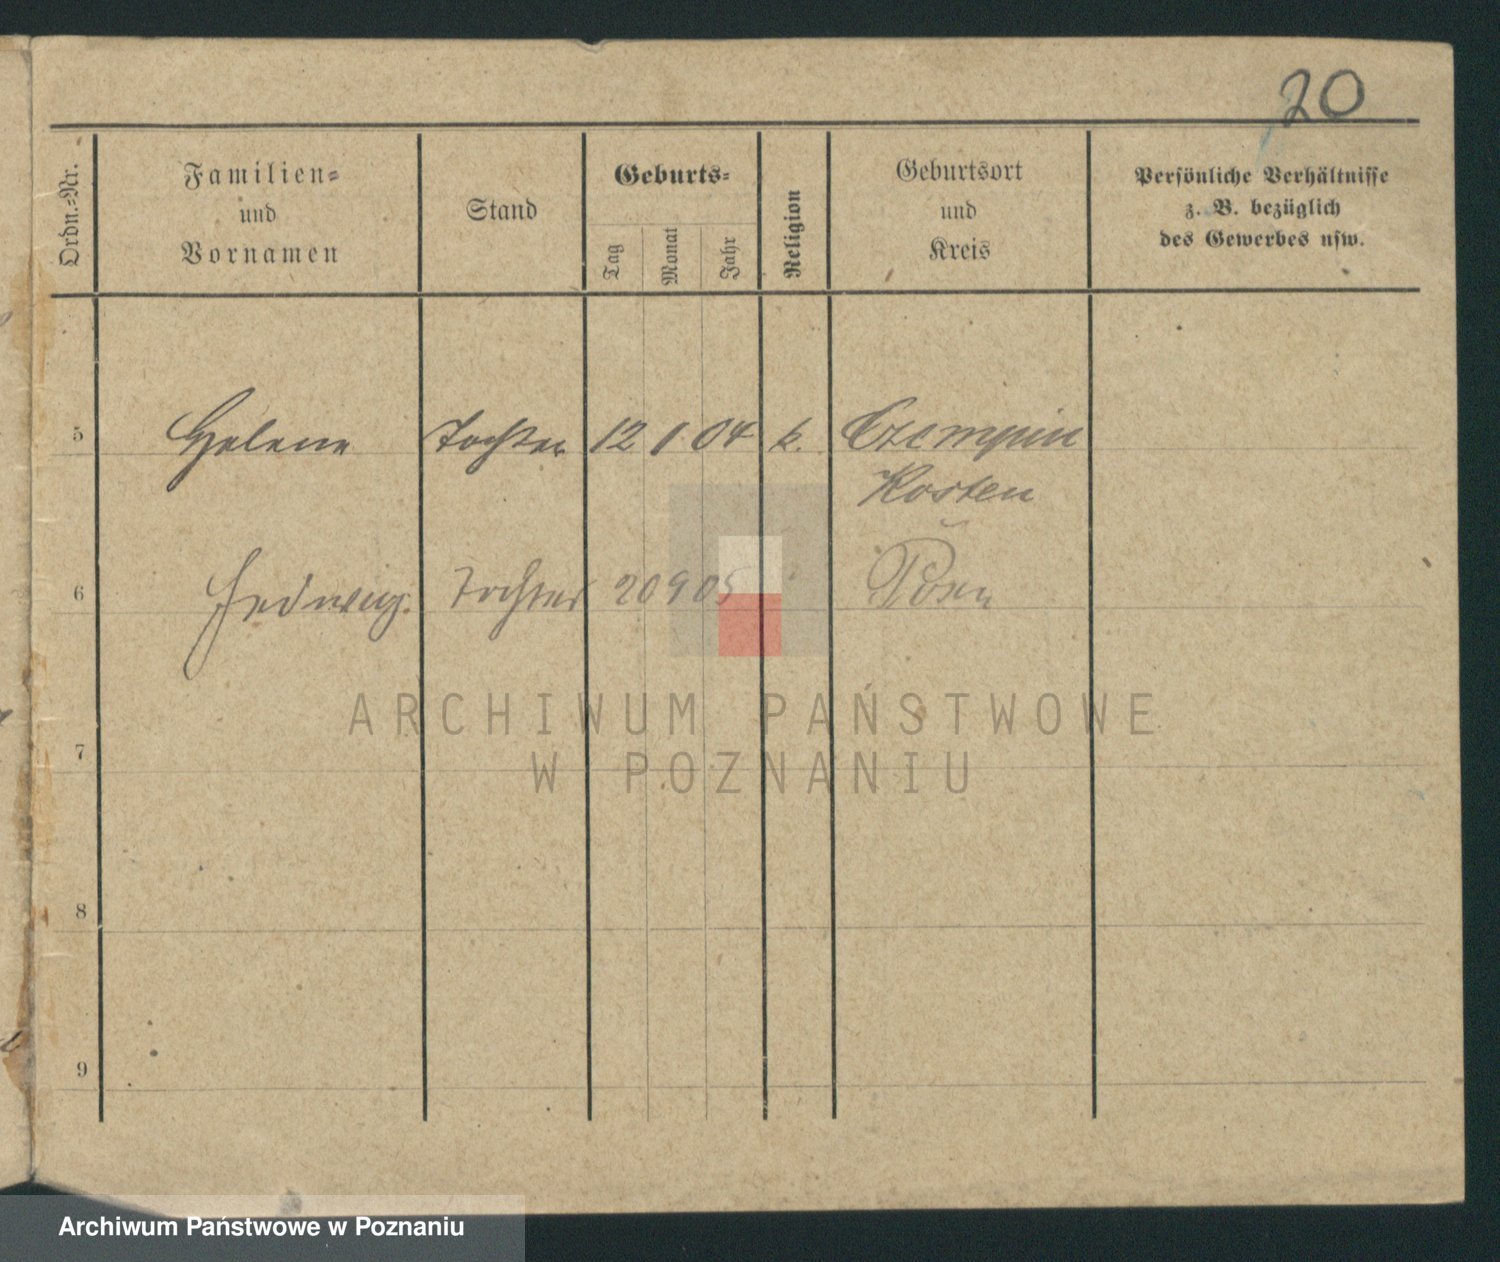 20
Ordn.-Nr.
Familien-
und
Vornamen
Stand
Geburts-
Tag
Monat
Jahr
Religion
Geburtsort
und
Kreis
Persönliche Verhältnisse
z. B. bezüglich
des Gewerbes usw.
5 Helene Tochter 12 1 04 k. Czempin
Kosten
6 Hedwig. Tochter 20 9 05 Posen
ARCHIWUM PAŃSTWOWE
W POZNANIU
7
8
9
Archiwum Państwowe w Poznaniu